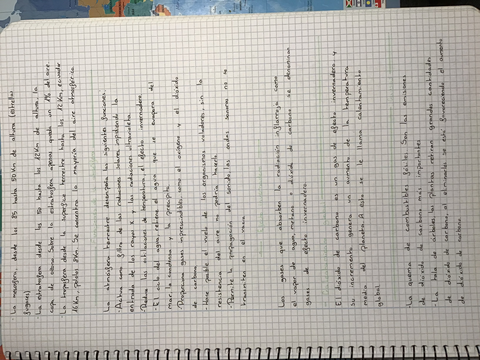 La mesosfera, desde los 85 hasta 50 Km de altura (estrella
fugaces)
La estratosfera desde los 50 hasta los 12 Km de altura, la
capa de ozono. Sobre la estratosfera apenas queda un 1% del aire.
La troposfera desde la superficie terrestre hasta los 12 Km, ecuador
16 Km, polos 8 Km. Se concentra la mayoría del aire atmosférico.
La atmósfera terrestre desempeña las siguientes funciones.
- Actúa como filtro de las radiaciones solares impidiendo la
entrada de los rayos X y las radiaciones ultravioleta.
- Reduce las oscilaciones de temperatura, el efecto invernadero
- El ciclo del agua, retiene el agua que se evapora del
mar, la condensa y la precipita
- Proporciona gases imprescindibles, como el oxígeno y el dióxido
de carbono.
- Hace posible el vuelo de los organismos voladores, sin la
resistencia del aire no podrían hacerlo
- Permite la propagación del sonido, las ondas sonoras no se
transmiten en el vacío
Los gases que absorben la radiación infrarroja como
el vapor de agua, metano y dióxido de carbono se denominan
gases de efecto invernadero.
El dióxido de carbono es un gas de efecto invernadero y
su incremento genera un aumento de la temperatura
media del planeta. A esto se le llama calentamiento
global.
- La quema de combustibles fósiles. Son las emisiones
de dióxido de carbono más importantes
- La tala de árboles, las plantas retiran grandes cantidades
de dióxido de carbono, al eliminarlas se está favoreciendo el aumento
de dióxido de carbono